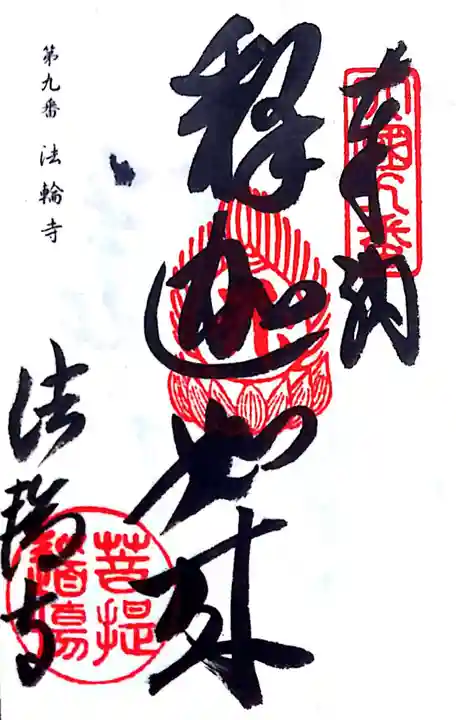 奉納
四國九番
釋迦如来
法輪寺
菩提道場
第九番 法輪寺